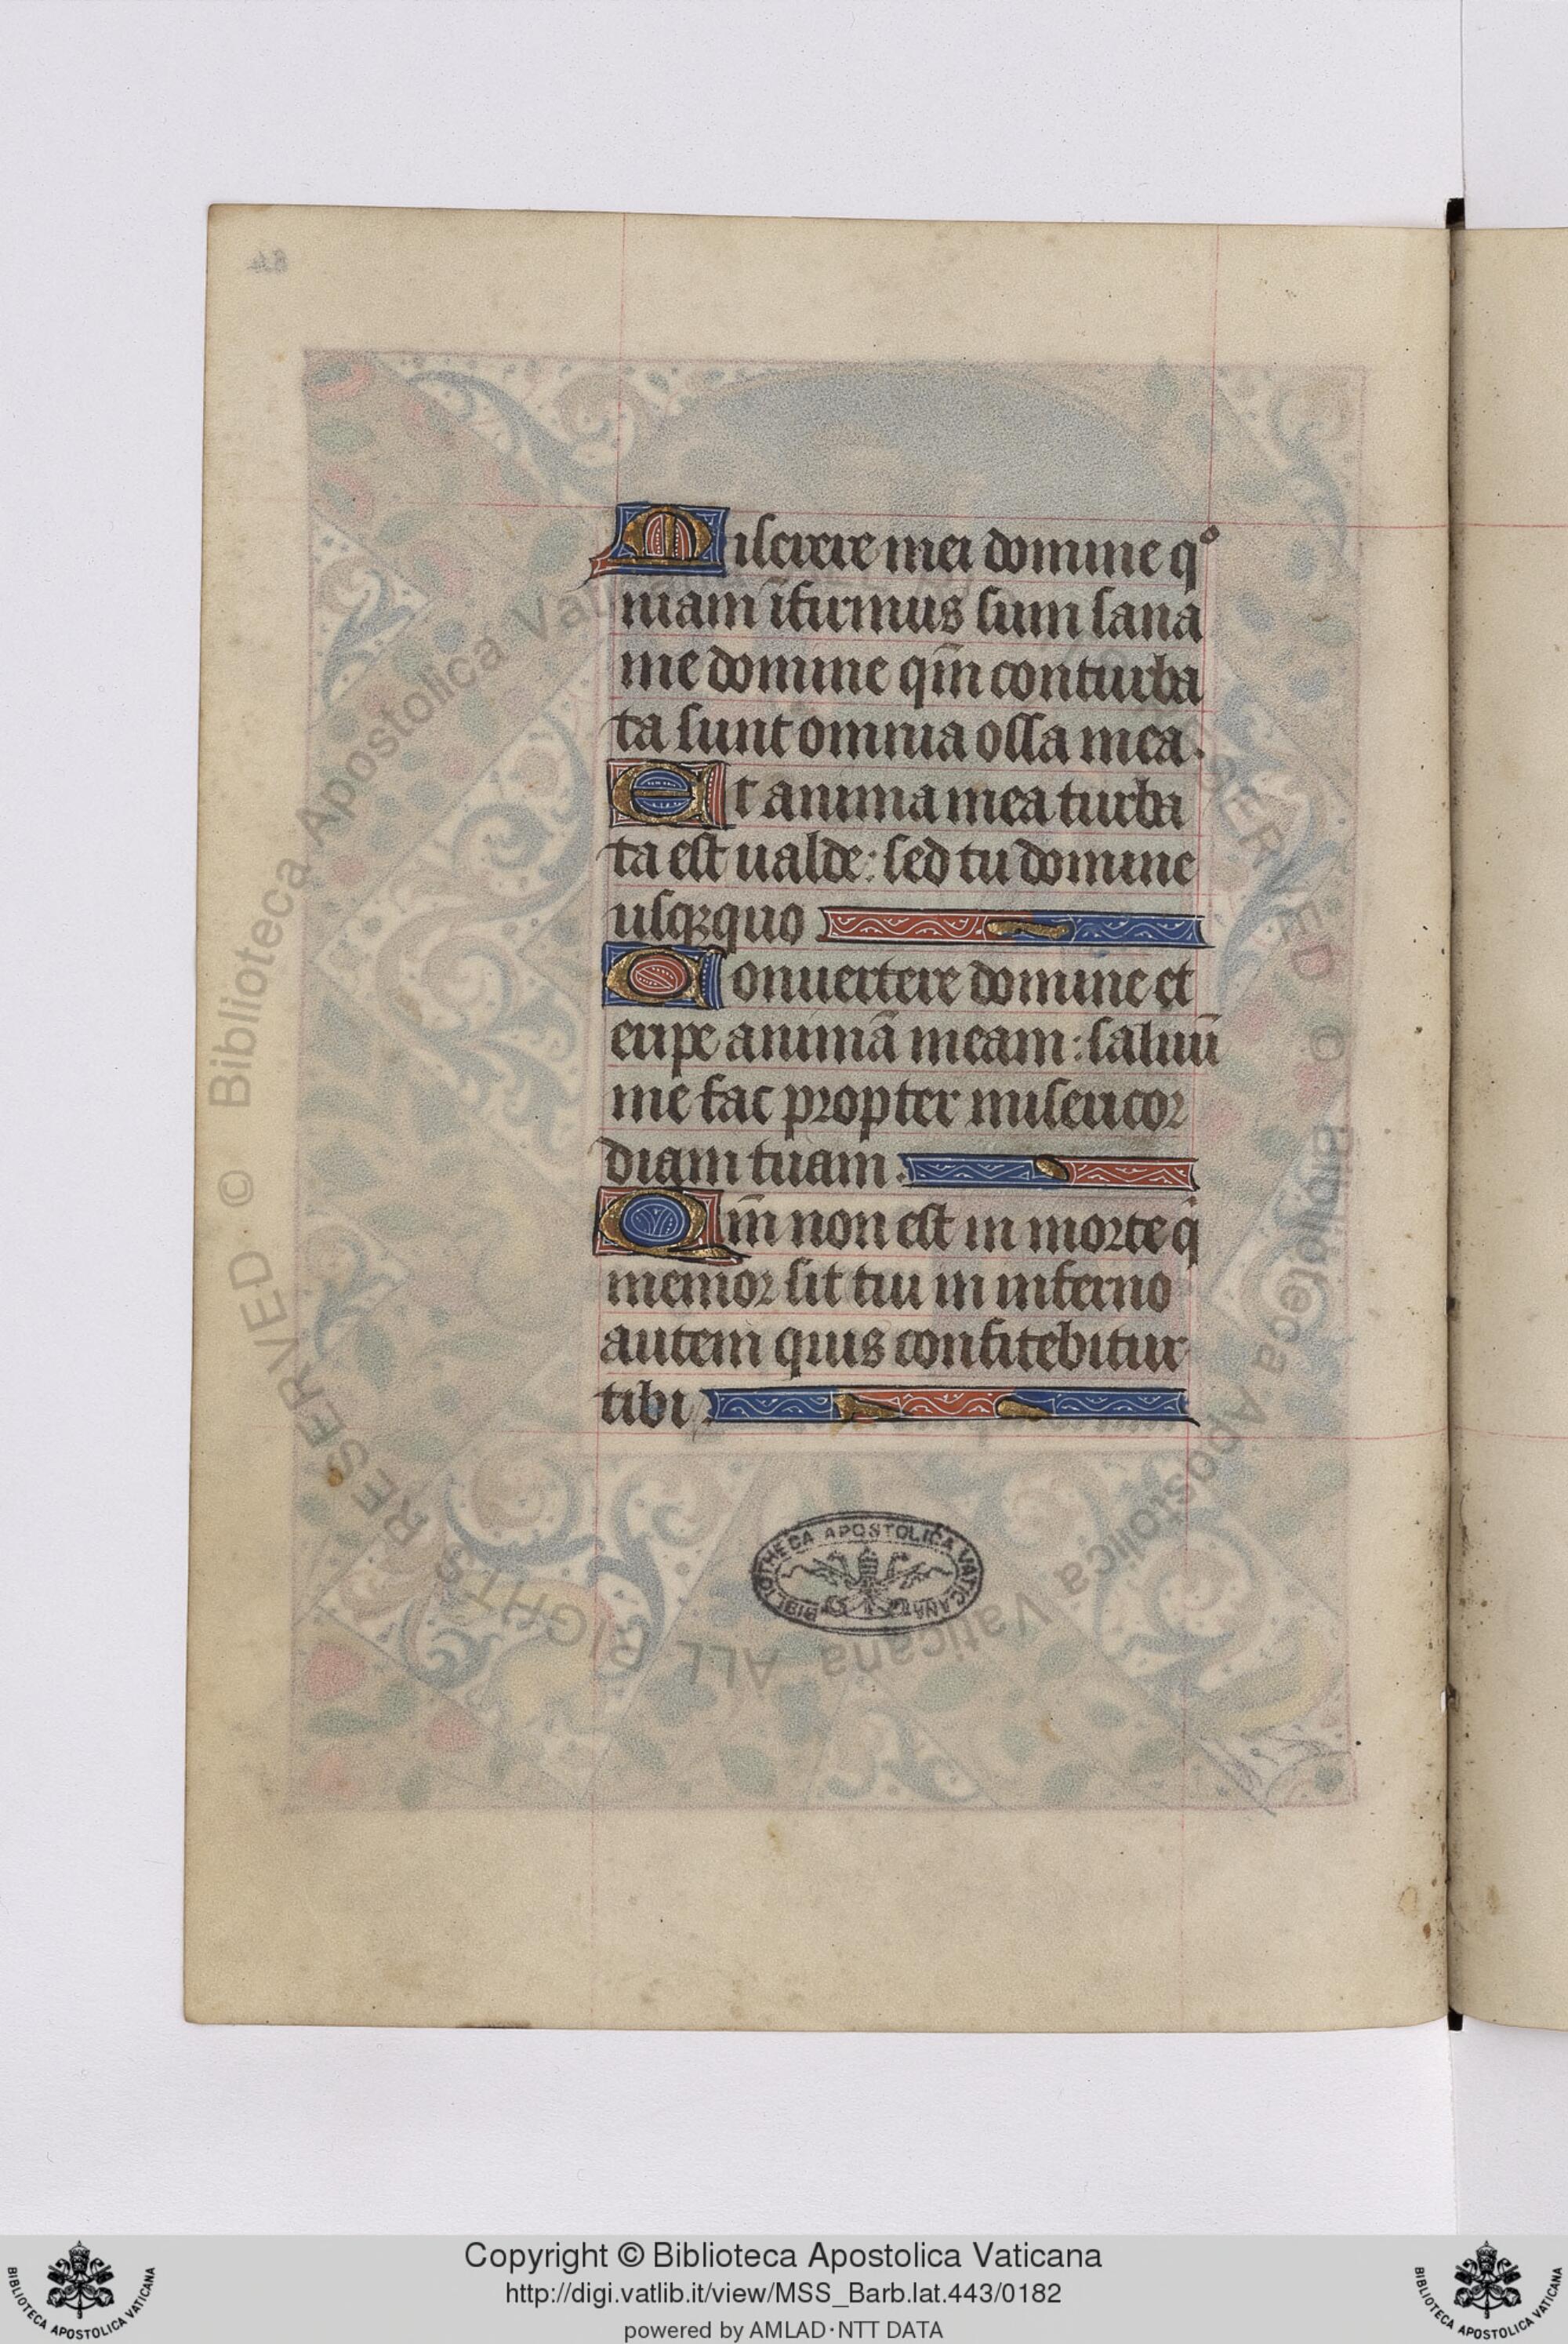 Miserere mei domine qº
niam īfirmus sum sana
me domine qm̄ conturba
ta sunt omnia ossa mea.
Et anima mea turba
ta est ualde: sed tu domine
usqꝫquo
Conuertere domine et
eripe animā meam: saluū
me fac propter misericor
diam tuam.
Qm̄ non est in morte qⁱ
memor sit tui in inferno
autem quis confitebitur
tibi.
BIBLIOTHECA APOSTOLICA VATICANA
Biblioteca Apostolica Vaticana ALL RIGHTS RESERVED ©
Copyright © Biblioteca Apostolica Vaticana
http://digi.vatlib.it/view/MSS_Barb.lat.443/0182
powered by AMLAD·NTT DATA
BIBLIOTECA APOSTOLICA VATICANA
BIBLIOTECA APOSTOLICA VATICANA